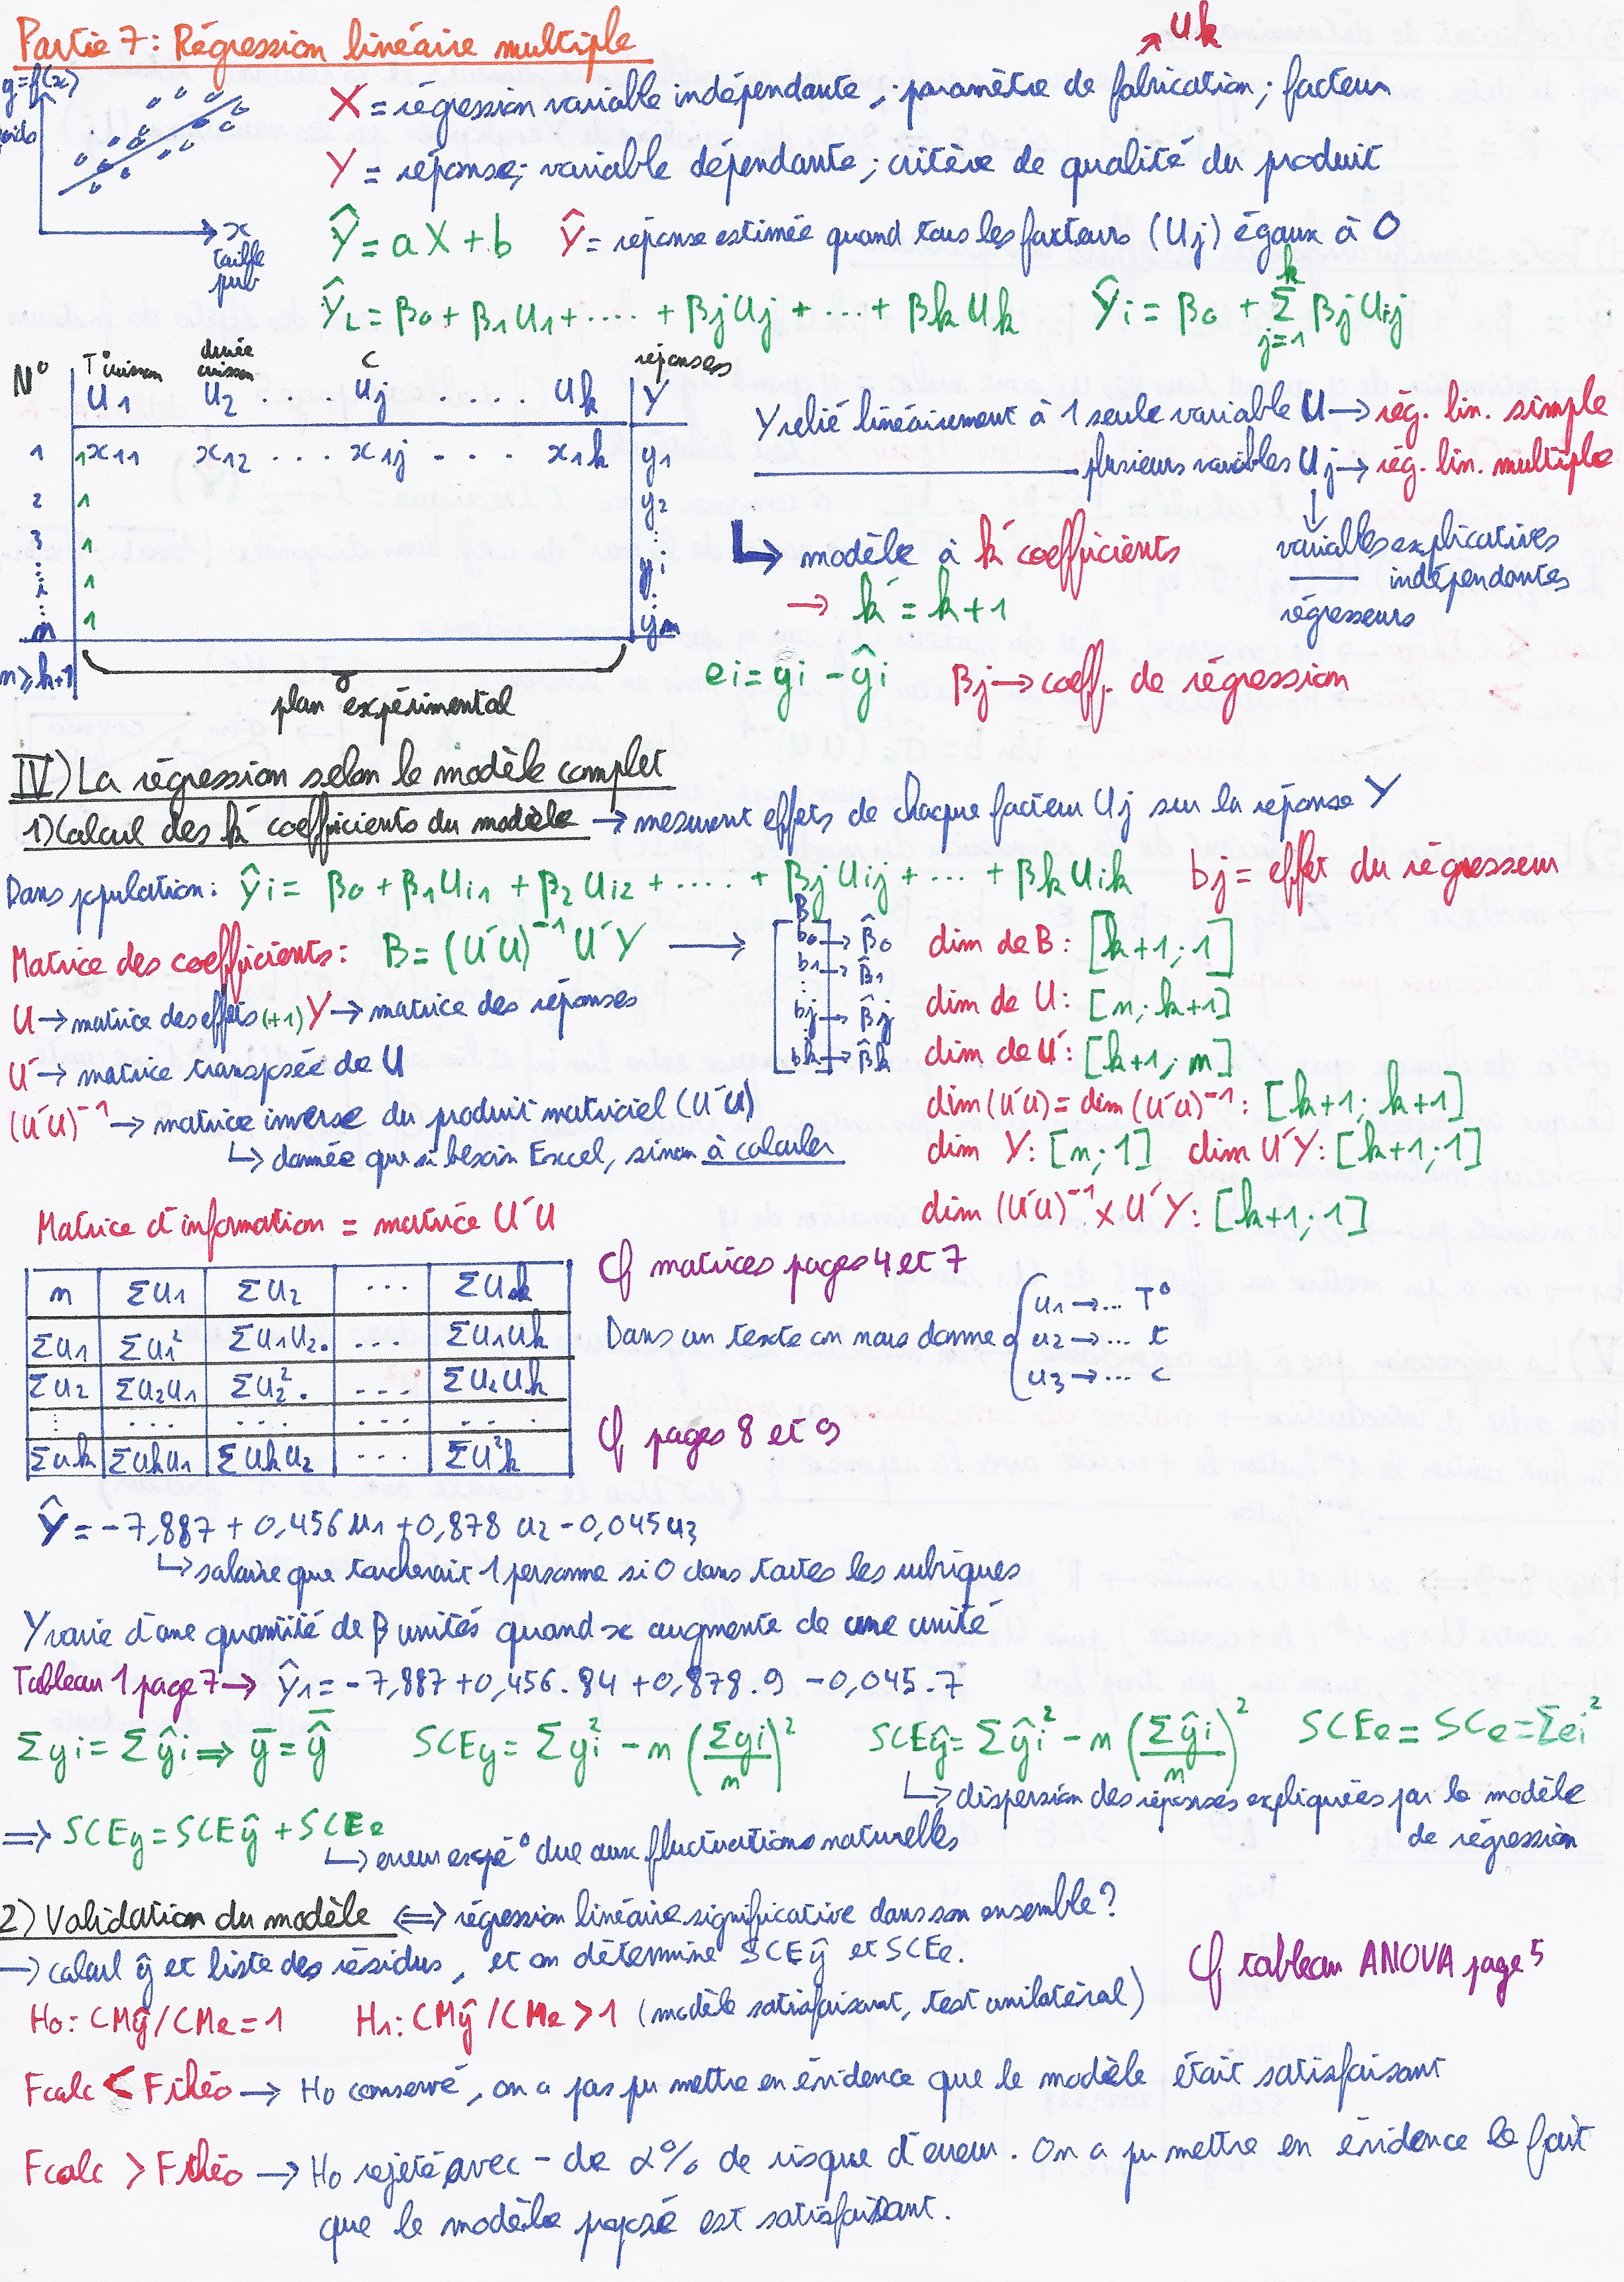 Partie 7: Régression linéaire multiple
Uk
y=f(x)
poids
x
taille
X = régression variable indépendante ; paramètre de fabrication ; facteur
Y = réponse ; variable dépendante ; critère de qualité du produit
Ŷ = aX + b Ŷ = réponse estimée quand tous les facteurs (Uj) égaux à 0
ŶL = β0 + β1U1 + .... + βjUj + ... + βkUk Ŷi = β0 + Σ(j=1 à k) βjUij
N° T° cuisson durée cuisson C réponses
U1 U2 .... Uj .... Uk Y
1 1 x11 x12 ... x1j - .. x1k y1
2 1 y2
3 1 ⋮
i 1 yi
n 1 yn
n ≥ k+1
plan expérimental
Y relié linéairement à 1 seule variable U → rég. lin. simple
plusieurs variables Uj → rég. lin. multiple
variables explicatives
indépendantes
régresseurs
↳ modèle à k' coefficients
→ k' = k+1
ei = yi - ŷi βj → coeff. de régression
IV) La régression selon le modèle complet
1) Calcul des k' coefficients du modèle → mesurent effets de chaque facteur Uj sur la réponse Y
Dans population : ŷi = β0 + β1Ui1 + β2Ui2 + .... + βjUij + ... + βkUik bj = effet du régresseur
Matrice des coefficients : B = (U'U)⁻¹ U'Y →
B
b0 → β̂0
b1 → β̂1
⋮
bj → β̂j
bk → β̂k
U → matrice des effets (+1) Y → matrice des réponses
U' → matrice transposée de U
(U'U)⁻¹ → matrice inverse du produit matriciel (U'U)
↳ donnée que si besoin Excel, sinon à calculer
dim de B : [k+1 ; 1]
dim de U : [n ; k+1]
dim de U' : [k+1 ; n]
dim (U'U) = dim (U'U)⁻¹ : [k+1 ; k+1]
dim Y : [n ; 1] dim U'Y : [k+1 ; 1]
dim (U'U)⁻¹ x U'Y : [k+1 ; 1]
Matrice d'information = matrice U'U
n ΣU1 ΣU2 ... ΣUk
ΣU1 ΣU1² ΣU1U2 ... ΣU1Uk
ΣU2 ΣU2U1 ΣU2² ... ΣU2Uk
⋮ ... ... ... ...
ΣUk ΣUkU1 ΣUkU2 ... ΣU²k
Cf matrices pages 4 et 7
Dans un texte on nous donne
u1 → ... T°
u2 → ... t
u3 → ... c
Cf pages 8 et 9
Ŷ = -7,887 + 0,456 u1 + 0,878 u2 - 0,045 u3
↳ salaire que toucherait 1 personne si 0 dans toutes les rubriques
Y varie d'une quantité de β unités quand x augmente de une unité
Tableau 1 page 7 → ŷ1 = -7,887 + 0,456 . 84 + 0,878 . 9 - 0,045 . 7
Σyi = Σŷi ⇒ ȳ = ŷ̄ SCEy = Σyi² - n (Σyi/n)² SCEŷ = Σŷi² - n (Σŷi/n)² SCEe = SCe = Σei²
↳ dispersion des réponses expliquées par le modèle
de régression
⇒ SCEy = SCEŷ + SCEe
↳ erreur expé° due aux fluctuations naturelles
2) Validation du modèle ⇔ régression linéaire significative dans son ensemble ?
→ calcul ŷ et liste des résidus, et on détermine SCEŷ et SCEe.
Cf tableau ANOVA page 5
H0 : CMŷ / CMe = 1 H1 : CMŷ / CMe > 1 (modèle satisfaisant, test unilatéral)
Fcalc < Fthéo → H0 conservé, on a pas pu mettre en évidence que le modèle était satisfaisant
Fcalc > Fthéo → H0 rejeté avec - de α% de risque d'erreur. On a pu mettre en évidence le fait
que le modèle proposé est satisfaisant.